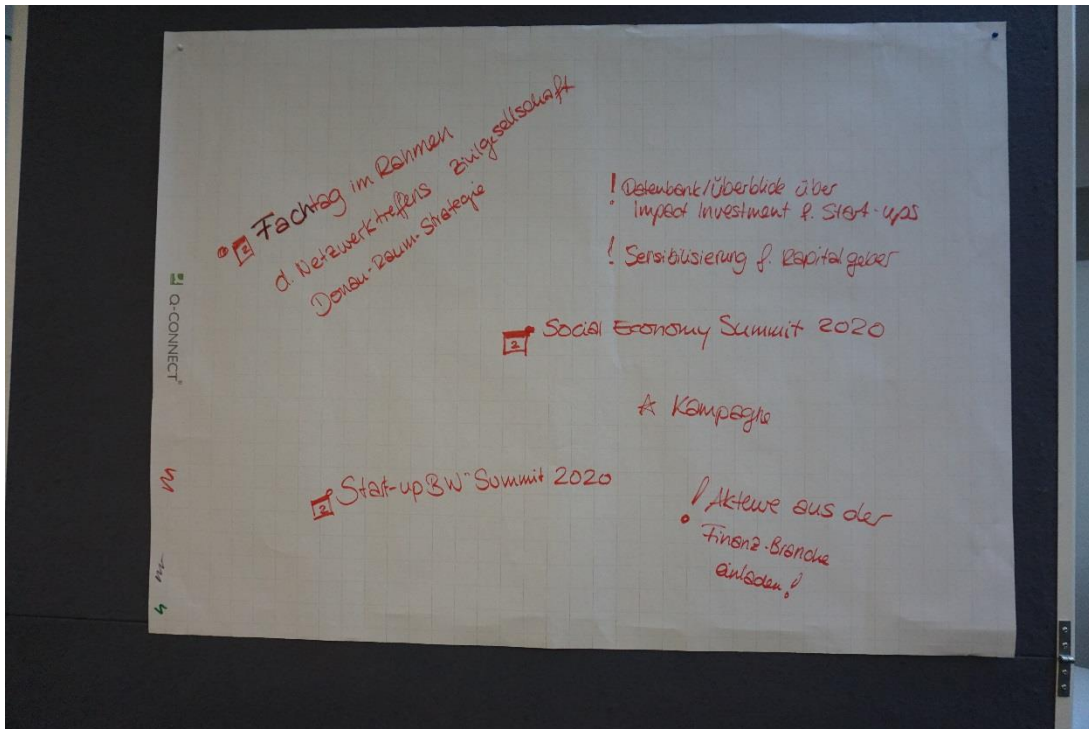 Fachtag im Rahmen
d. Netzwerktreffens Zivilgesellschaft
Donau-Raum-Strategie
! Datenbank/Überblick über
impact Investment f. Start-ups
! Sensibilisierung f. Kapitalgeber
2 Social Economy Summit 2020
Kampagne
2 Start-up BW" Summit 2020
! Akteure aus der
Finanz-Branche
einladen!
Q-CONNECT®